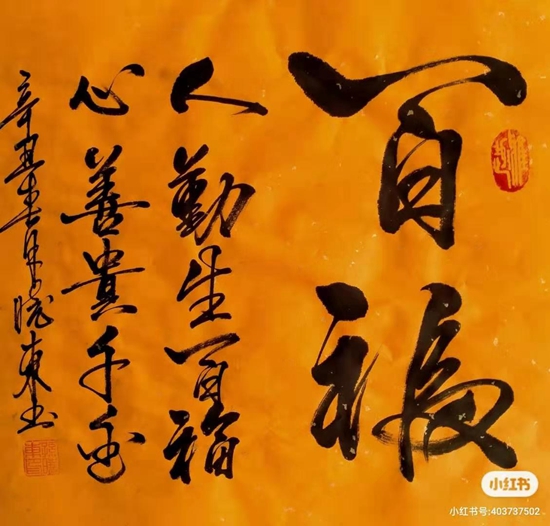 百福
人勤生百福
心善貴千
辛丑春月晓東书
小红书
小红书号:403737502